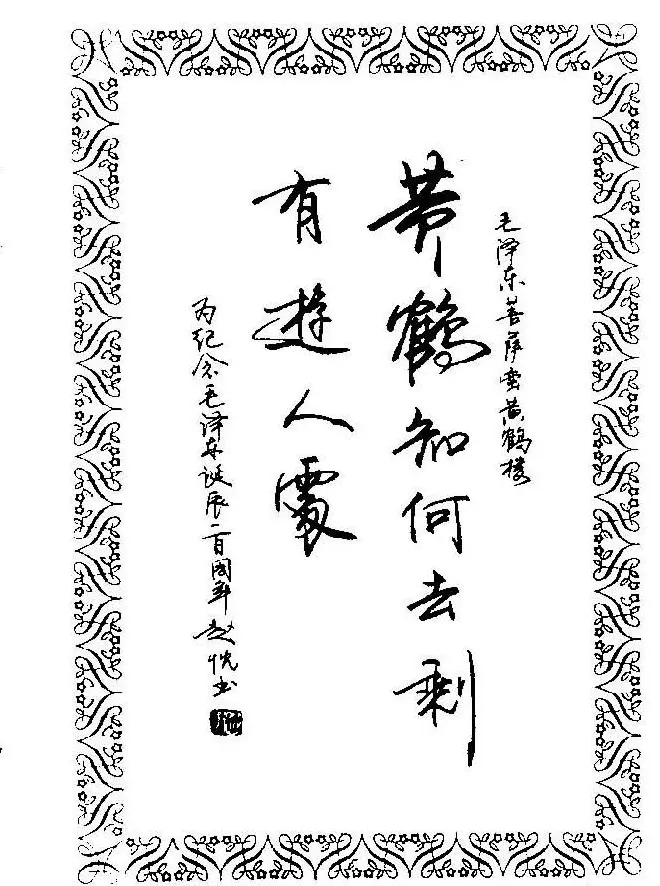 毛泽东菩萨蛮黄鹤楼
黄鹤知何去剩
有遊人處
为纪念毛泽东诞辰一百周年赵悦书